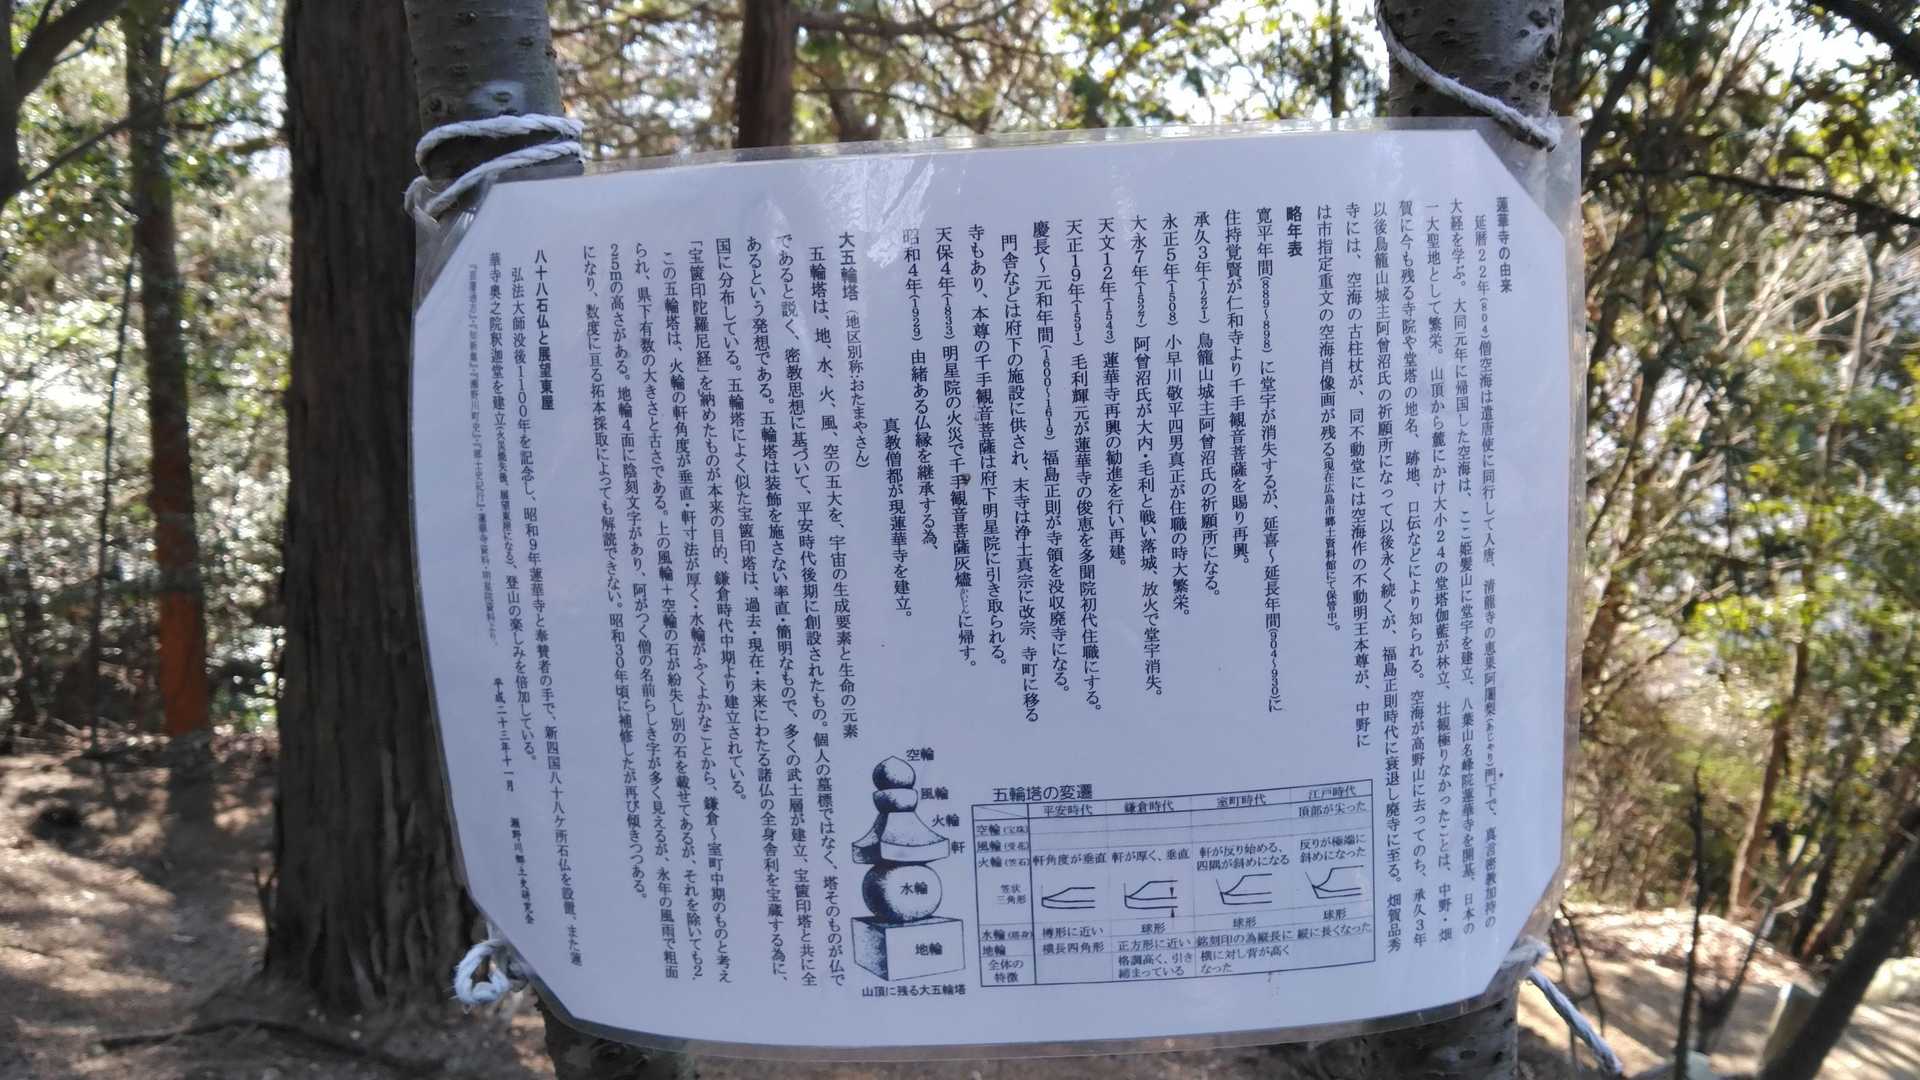 蓮華寺の由来
延暦22年(804)僧空海は遣唐使に同行して入唐、清龍寺の恵果阿闍梨(あじゃり)門下で、真言密教加持の
大経を学ぶ。大同元年に帰国した空海は、ここ姫髪山に堂宇を建立、八葉山名峰院蓮華寺を開基、日本の
一大聖地として繁栄。山頂から麓にかけ大小24の堂塔伽藍が林立、壮観極りなかったことは、中野・畑
賀に今も残る寺院や堂塔の地名、跡地、口伝などにより知られる。空海が高野山に去ってのち、承久3年
以後鳥籠山城主阿曾沼氏の祈願所になって以後永く続くが、福島正則時代に衰退し廃寺に至る。畑賀品秀
寺には、空海の古柱杖が、同不動堂には空海作の不動明王本尊が、中野に
は市指定重文の空海肖像画が残る(現在広島市郷土資料館にて保管中)。
略年表
寛平年間(889~898)に堂宇が消失するが、延喜~延長年間(904~930)に
住持覚賢が仁和寺より千手観音菩薩を賜り再興。
承久3年(1221)鳥籠山城主阿曾沼氏の祈願所になる。
永正5年(1508)小早川敬平四男真正が住職の時大繁栄。
大永7年(1527)阿曾沼氏が大内・毛利と戦い落城、放火で堂宇消失。
天文12年(1543)蓮華寺再興の勧進を行い再建。
天正19年(1591)毛利輝元が蓮華寺の俊恵を多聞院初代住職にする。
慶長~元和年間(1600~1619)福島正則が寺領を没収廃寺になる。
門舎などは府下の施設に供され、末寺は浄土真宗に改宗、寺町に移る
寺もあり、本尊の千手観音菩薩は府下明星院に引き取られる。
天保4年(1833)明星院の火災で千手観音菩薩灰燼(かいじん)に帰す。
昭和4年(1929)由緒ある仏縁を継承する為、
真教僧都が現蓮華寺を建立。
大五輪塔(地区別称・おたまやさん)
五輪塔は、地、水、火、風、空の五大を、宇宙の生成要素と生命の元素
であると説く、密教思想に基づいて、平安時代後期に創設されたもの。個人の墓標ではなく、塔そのものが仏で
あるという発想である。五輪塔は装飾を施さない率直・簡明なもので、多くの武士層が建立、宝篋印塔と共に全
国に分布している。五輪塔によく似た宝篋印塔は、過去・現在・未来にわたる諸仏の全身舎利を宝蔵する為に、
「宝篋印陀羅尼経」を納めたものが本来の目的、鎌倉時代中期より建立されている。
この五輪塔は、火輪の軒角度が垂直・軒寸法が厚く・水輪がふくよかなことから、鎌倉~室町中期のものと考え
られ、県下有数の大きさと古さである。上の風輪+空輪の石が紛失し別の石を載せてあるが、それを除いても2.
25mの高さがある。地輪4面に陰刻文字があり、阿がつく僧の名前らしき字が多く見えるが、永年の風雨で粗面
になり、数度に亘る拓本採取によっても解読できない。昭和30年頃に補修したが再び傾きつつある。
八十八石仏と展望東屋
弘法大師没後1100年を記念し、昭和9年蓮華寺と奉賛者の手で、新四国八十八ケ所石仏を設置、また蓮
華寺奥之院釈迦堂を建立(火災焼失後、展望東屋になる)、登山の楽しみを倍加している。
平成二十三年十一月
瀬野川郷土史研究会
空輪
風輪
火輪
軒
水輪
地輪
山頂に残る大五輪塔
五輪塔の変遷
平安時代 鎌倉時代 室町時代 江戸時代
空輪(宝珠) 頂部が尖った
風輪(受花)
火輪(笠石) 軒角度が垂直 軒が厚く、垂直 軒が反り始める、四隅が斜めになる 反りが極端に斜めになった
笠状三角形
水輪(塔身) 樽形に近い 球形 球形 球形
地輪 横長四角形 正方形に近い 銘刻印の為縦長に 縦に長くなった
全体の特徴 格調高く、引き締まっている 横に対し背が高くなった